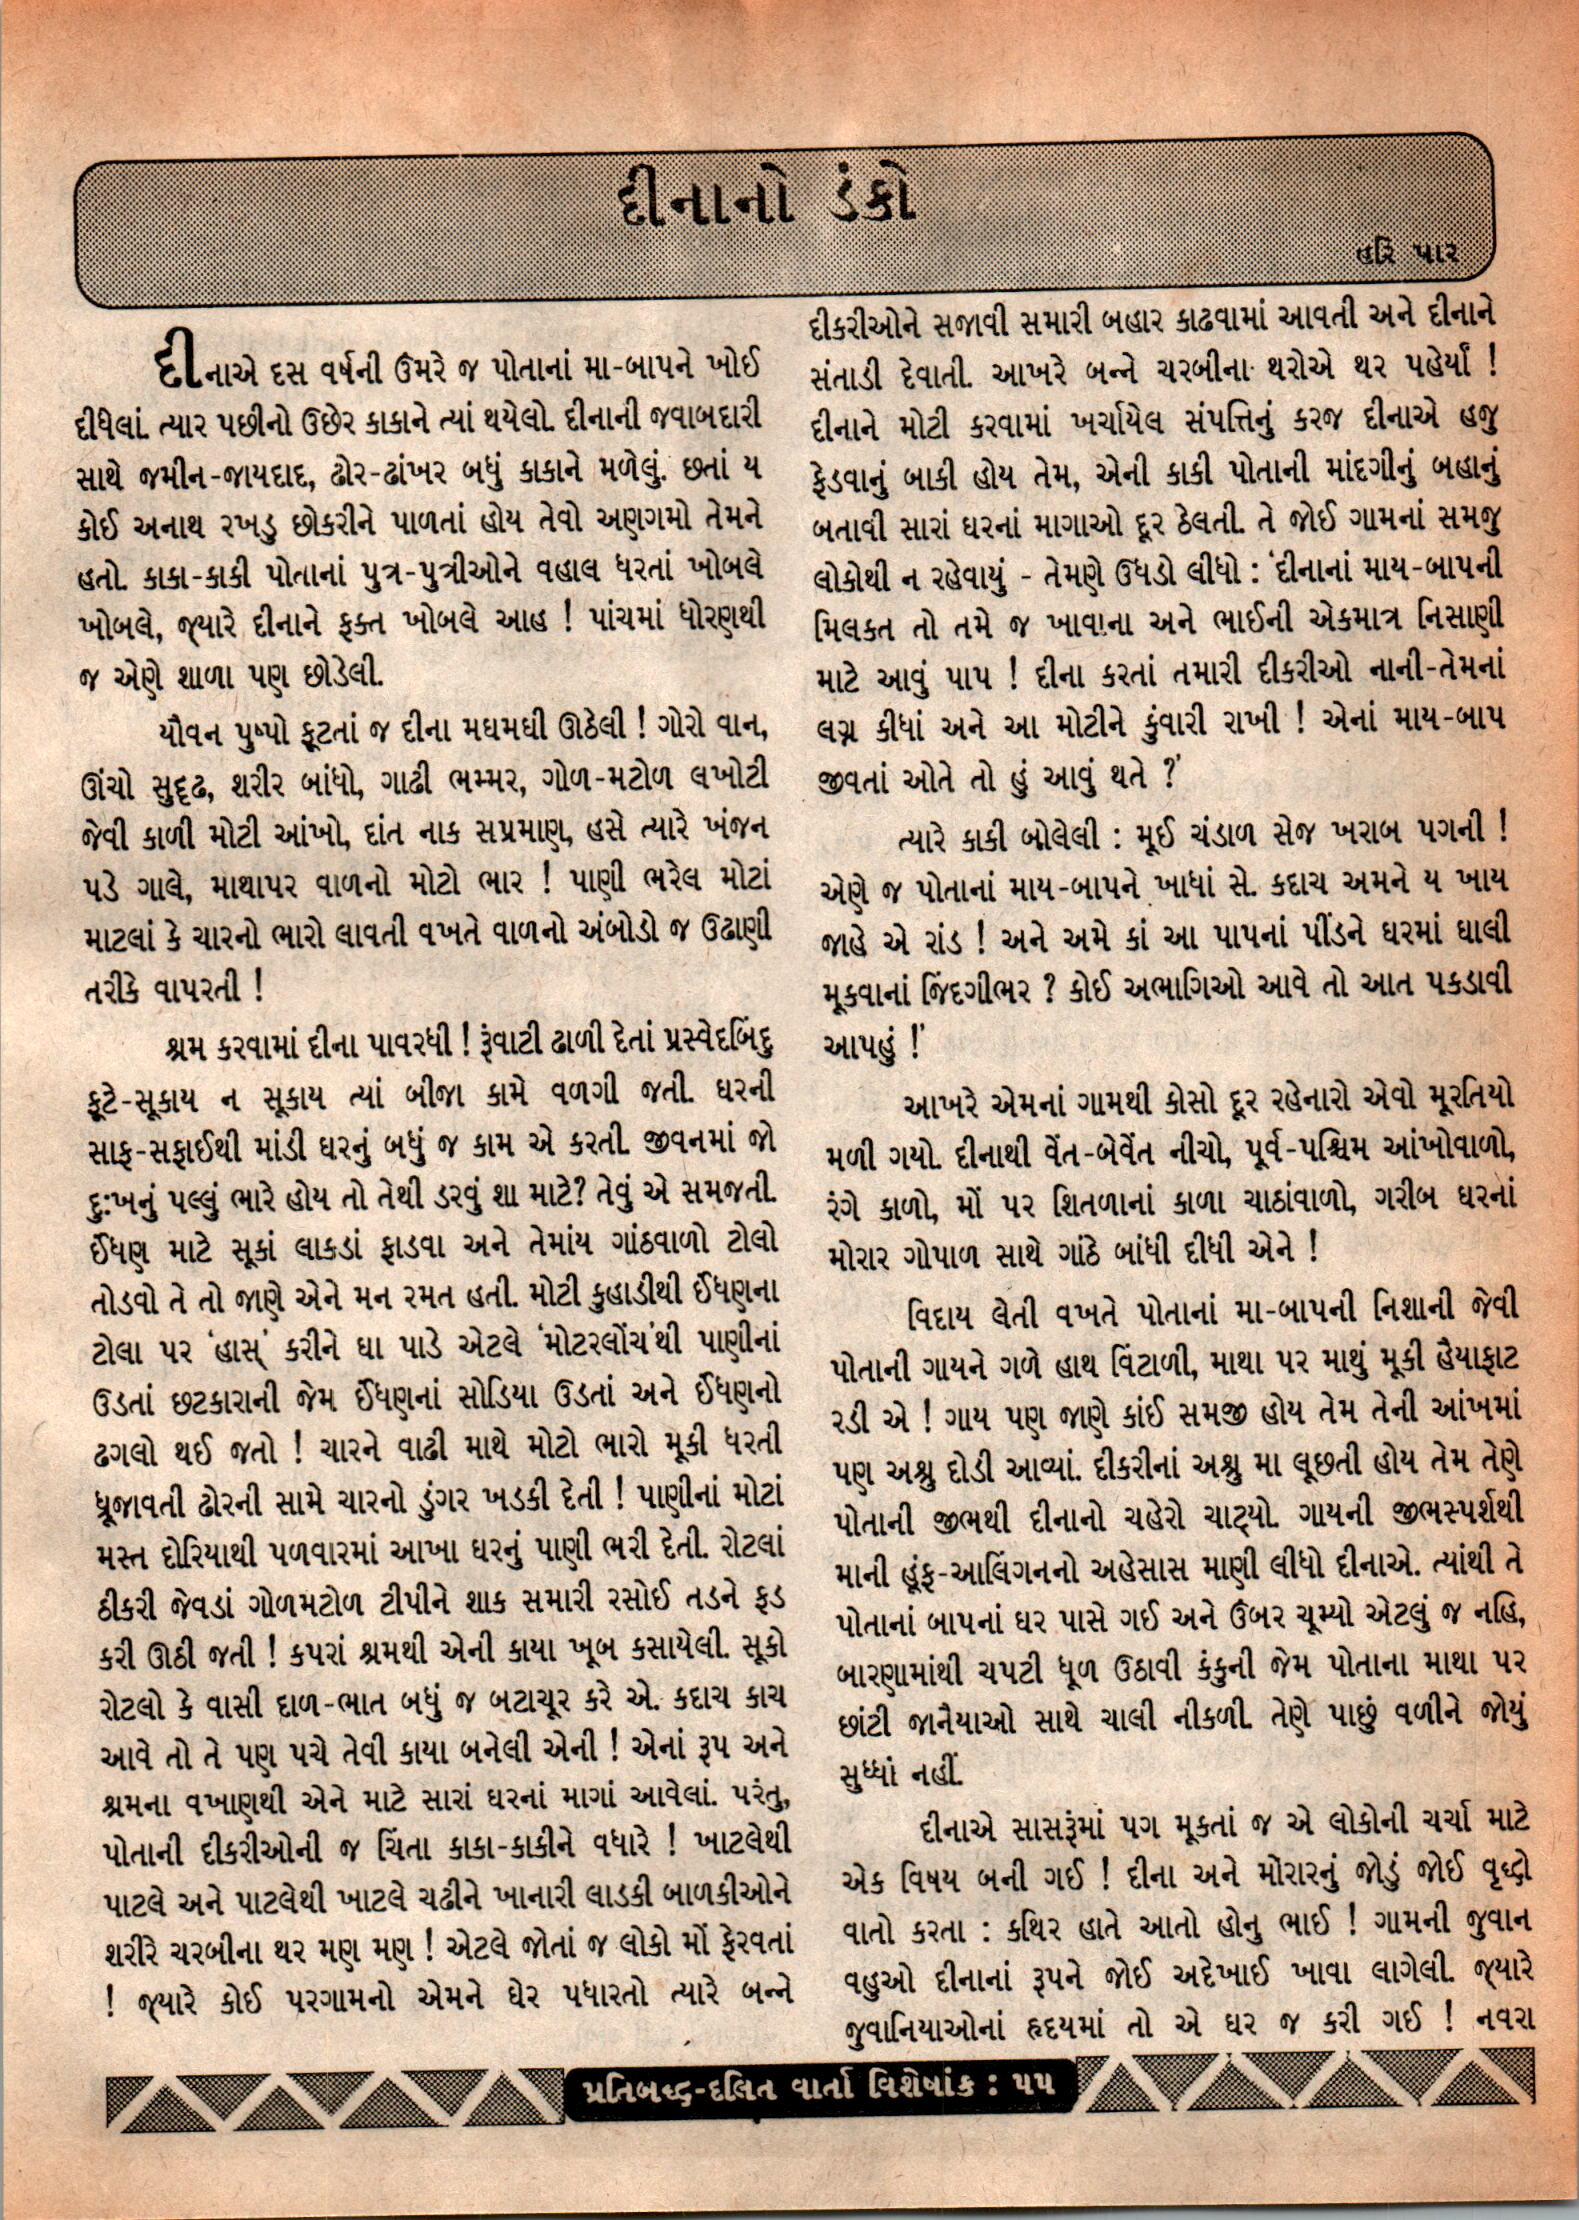 દીનાનો ડંકો
હરિ પાર
દીનાએ દસ વર્ષની ઉંમરે જ પોતાનાં મા-બાપને ખોઈ
દીધેલાં. ત્યાર પછીનો ઉછેર કાકાને ત્યાં થયેલો. દીનાની જવાબદારી
સાથે જમીન-જાયદાદ, ઢોર-ઢાંખર બધું કાકાને મળેલું. છતાં ય
કોઈ અનાથ રખડુ છોકરીને પાળતાં હોય તેવો અણગમો તેમને
હતો. કાકા-કાકી પોતાનાં પુત્ર-પુત્રીઓને વહાલ ધરતાં ખોબલે
ખોબલે, જ્યારે દીનાને ફક્ત ખોબલે આહ ! પાંચમાં ધોરણથી
જ એણે શાળા પણ છોડેલી.
યૌવન પુષ્પો ફૂટતાં જ દીના મઘમઘી ઊઠેલી ! ગોરો વાન,
ઊંચો સુદૃઢ, શરીર બાંધો, ગાઢી ભમ્મર, ગોળ-મટોળ લખોટી
જેવી કાળી મોટી આંખો, દાંત નાક સપ્રમાણ, હસે ત્યારે ખંજન
પડે ગાલે, માથાપર વાળનો મોટો ભાર ! પાણી ભરેલ મોટાં
માટલાં કે ચારનો ભારો લાવતી વખતે વાળનો અંબોડો જ ઉઢાણી
તરીકે વાપરતી !
શ્રમ કરવામાં દીના પાવરધી ! રૂંવાટી ઢાળી દેતાં પ્રસ્વેદબિંદુ
ફૂટે-સૂકાય ન સૂકાય ત્યાં બીજા કામે વળગી જતી. ઘરની
સાફ-સફાઈથી માંડી ઘરનું બધું જ કામ એ કરતી. જીવનમાં જો
દુઃખનું પલ્લું ભારે હોય તો તેથી ડરવું શા માટે? તેવું એ સમજતી.
ઈંધણ માટે સૂકાં લાકડાં ફાડવા અને તેમાંય ગાંઠવાળો ટોલો
તોડવો તે તો જાણે એને મન રમત હતી. મોટી કુહાડીથી ઈંધણના
ટોલા પર 'હાસ્' કરીને ઘા પાડે એટલે 'મોટરલોંચ'થી પાણીનાં
ઉડતાં છટકારાની જેમ ઈંધણનાં સોડિયા ઉડતાં અને ઈંધણનો
ઢગલો થઈ જતો ! ચારને વાઢી માથે મોટો ભારો મૂકી ધરતી
ધ્રૂજાવતી ઢોરની સામે ચારનો ડુંગર ખડકી દેતી ! પાણીનાં મોટાં
મસ્ત દોરિયાથી પળવારમાં આખા ઘરનું પાણી ભરી દેતી. રોટલાં
ઠીકરી જેવડાં ગોળમટોળ ટીપીને શાક સમારી રસોઈ તડને ફડ
કરી ઊઠી જતી ! કપરાં શ્રમથી એની કાયા ખૂબ કસાયેલી. સૂકો
રોટલો કે વાસી દાળ-ભાત બધું જ બટાચૂર કરે એ. કદાચ કાચ
આવે તો તે પણ પચે તેવી કાયા બનેલી એની ! એનાં રૂપ અને
શ્રમના વખાણથી એને માટે સારાં ઘરનાં માગાં આવેલાં. પરંતુ,
પોતાની દીકરીઓની જ ચિંતા કાકા-કાકીને વધારે ! ખાટલેથી
પાટલે અને પાટલેથી ખાટલે ચઢીને ખાનારી લાડકી બાળકીઓને
શરીરે ચરબીના થર મણ મણ ! એટલે જોતાં જ લોકો મોં ફેરવતાં
! જ્યારે કોઈ પરગામનો એમને ઘેર પધારતો ત્યારે બન્ને
દીકરીઓને સજાવી સમારી બહાર કાઢવામાં આવતી અને દીનાને
સંતાડી દેવાતી. આખરે બન્ને ચરબીના થરોએ થર પહેર્યાં !
દીનાને મોટી કરવામાં ખર્ચાયેલ સંપત્તિનું કરજ દીનાએ હજુ
ફેડવાનું બાકી હોય તેમ, એની કાકી પોતાની માંદગીનું બહાનું
બતાવી સારાં ઘરનાં માગાઓ દૂર ઠેલતી. તે જોઈ ગામનાં સમજુ
લોકોથી ન રહેવાયું - તેમણે ઊધડો લીધો : 'દીનાનાં માય-બાપની
મિલકત તો તમે જ ખાવાના અને ભાઈની એકમાત્ર નિસાણી
માટે આવું પાપ ! દીના કરતાં તમારી દીકરીઓ નાની-તેમનાં
લગ્ન કીધાં અને આ મોટીને કુંવારી રાખી ! એનાં માય-બાપ
જીવતાં ઓતે તો હું આવું થતે ?'
ત્યારે કાકી બોલેલી : મૂઈ ચંડાળ સેજ ખરાબ પગની !
એણે જ પોતાનાં માય-બાપને ખાધાં સે. કદાચ અમને ય ખાય
જાહે એ રાંડ ! અને અમે કાં આ પાપનાં પીંડને ઘરમાં ઘાલી
મૂકવાનાં જિંદગીભર ? કોઈ અભાગિઓ આવે તો આત પકડાવી
આપહું !'
આખરે એમનાં ગામથી કોસો દૂર રહેનારો એવો મૂરતિયો
મળી ગયો. દીનાથી વેંત-બેવેંત નીચો, પૂર્વ-પશ્ચિમ આંખોવાળો,
રંગે કાળો, મોં પર શિતળાનાં કાળા ચાઠાંવાળો, ગરીબ ઘરનાં
મોરાર ગોપાળ સાથે ગાંઠે બાંધી દીધી એને !
વિદાય લેતી વખતે પોતાનાં મા-બાપની નિશાની જેવી
પોતાની ગાયને ગળે હાથ વિંટાળી, માથા પર માથું મૂકી હૈયાફાટ
રડી એ ! ગાય પણ જાણે કાંઈ સમજી હોય તેમ તેની આંખમાં
પણ અશ્રુ દોડી આવ્યાં. દીકરીનાં અશ્રુ મા લૂછતી હોય તેમ તેણે
પોતાની જીભથી દીનાનો ચહેરો ચાટ્યો. ગાયની જીભસ્પર્શથી
માની હૂંફ-આલિંગનનો અહેસાસ માણી લીધો દીનાએ. ત્યાંથી તે
પોતાનાં બાપનાં ઘર પાસે ગઈ અને ઉંબર ચૂમ્યો એટલું જ નહિ,
બારણામાંથી ચપટી ધૂળ ઉઠાવી કંકુની જેમ પોતાના માથા પર
છાંટી જાનૈયાઓ સાથે ચાલી નીકળી. તેણે પાછું વળીને જોયું
સુધ્ધાં નહીં.
દીનાએ સાસરૂંમાં પગ મૂકતાં જ એ લોકોની ચર્ચા માટે
એક વિષય બની ગઈ ! દીના અને મોરારનું જોડું જોઈ વૃદ્ધો
વાતો કરતા : કથિર હાતે આતો હોનુ ભાઈ ! ગામની જુવાન
વહુઓ દીનાનાં રૂપને જોઈ અદેખાઈ ખાવા લાગેલી. જ્યારે
જુવાનિયાઓનાં હૃદયમાં તો એ ઘર જ કરી ગઈ ! નવરા
પ્રતિબદ્ધ-દલિત વાર્તા વિશેષાંક : ૫૫